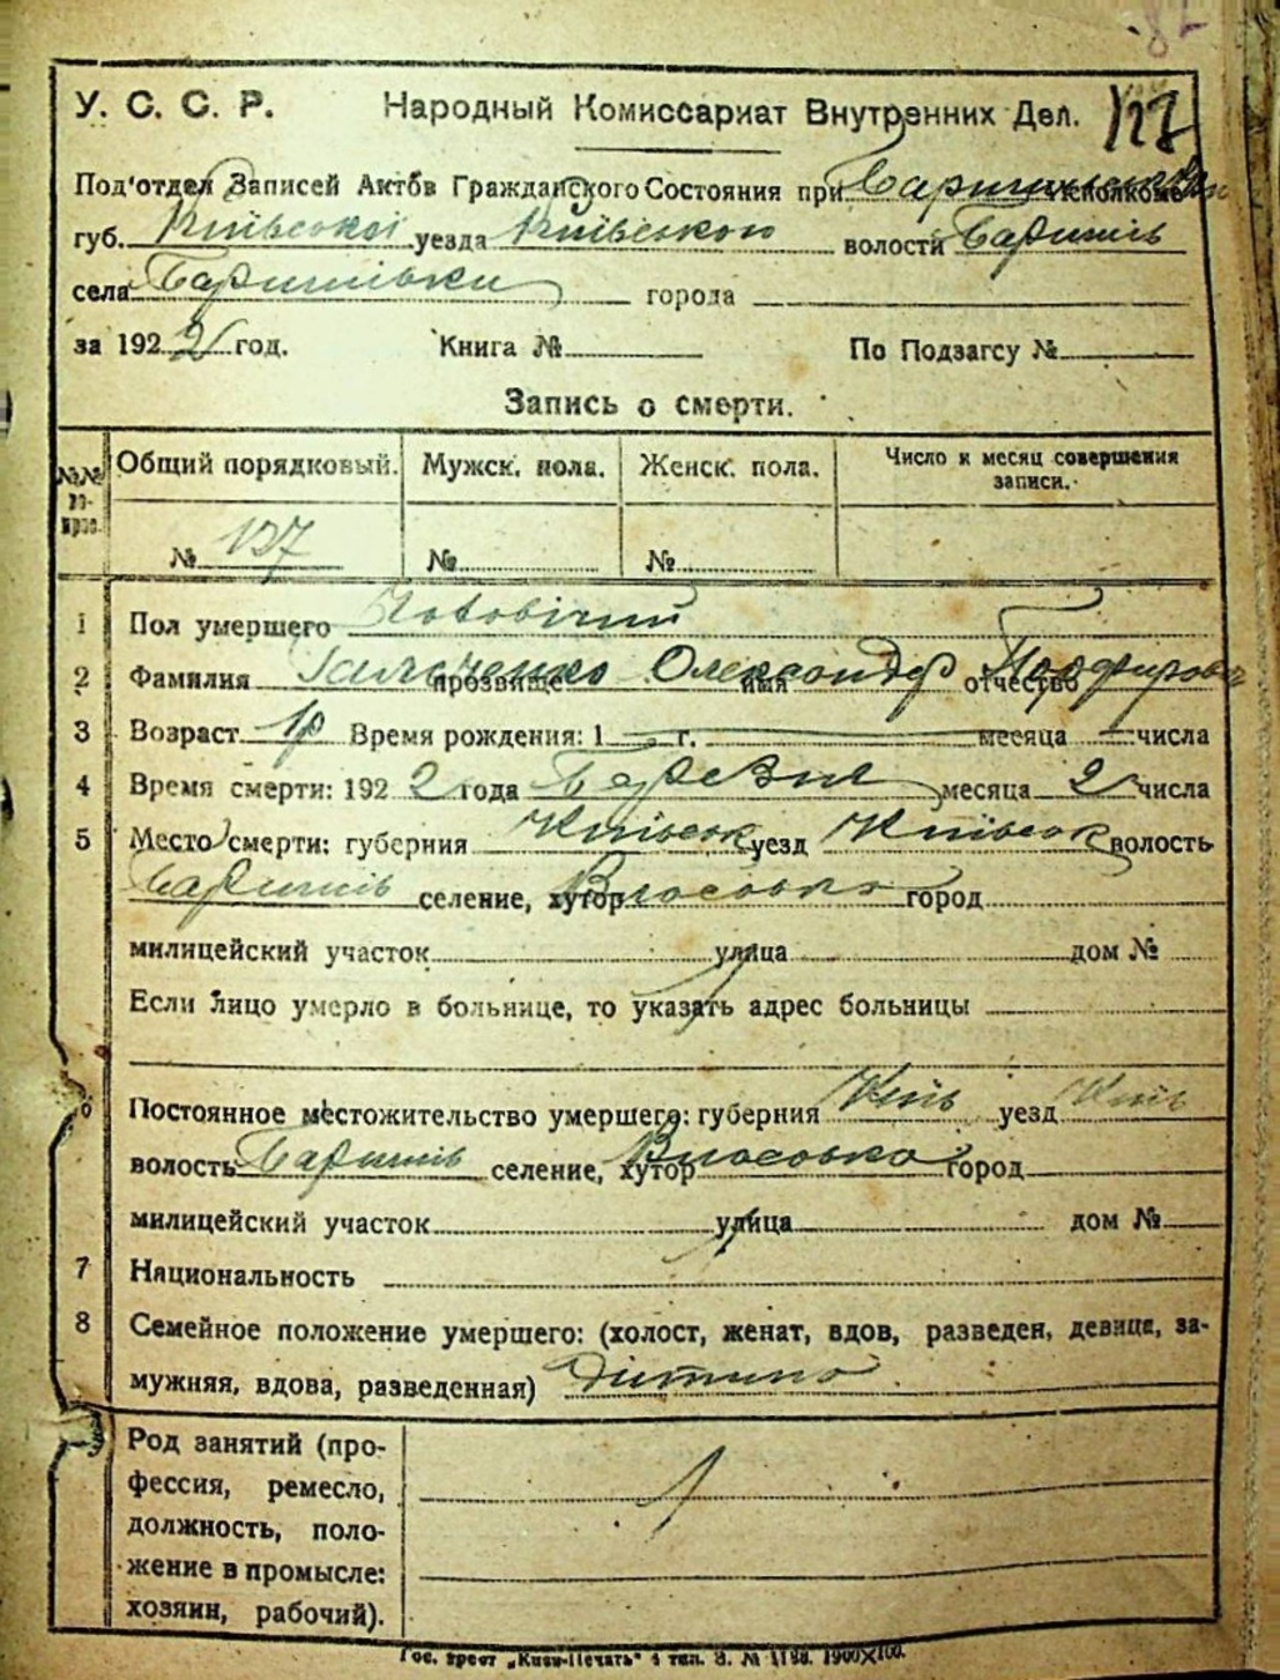 82
У. С. С. Р. Народный Комиссариат Внутренних Дел. 127
Под'отдел Записей Актов Гражданского Состояния при исполкоме
губ. Київської уезда Київського волости Баришів
села Баришівки города
за 1922 год. Книга № По Подзагсу №
Запись о смерти.
№№ вопрос. Общий порядковый. Мужск. пола. Женск. пола. Число и месяц совершения записи.
№ 127 № №
1 Пол умершего Чоловічий
2 Фамилия прозвище Олександр имя отчество
3 Возраст 1р Время рождения: 1 г. месяца числа
4 Время смерти: 1922 года Березня месяца 2 числа
5 Место смерти: губерния Київськ уезд Київськ волость
Баришів селение, хутор Власовка город
милицейский участок улица дом №
Если лицо умерло в больнице, то указать адрес больницы
6 Постоянное местожительство умершего: губерния Київ уезд Київ
волость Баришів селение, хутор Власовка город
милицейский участок улица дом №
7 Национальность
8 Семейное положение умершего: (холост, женат, вдов, разведен, девица, за-
мужняя, вдова, разведенная) Дитина
Род занятий (про-
фессия, ремесло,
должность, поло-
жение в промысле:
хозяин, рабочий).
Гос. трест „Киев-Печать" 4 тип. З. №